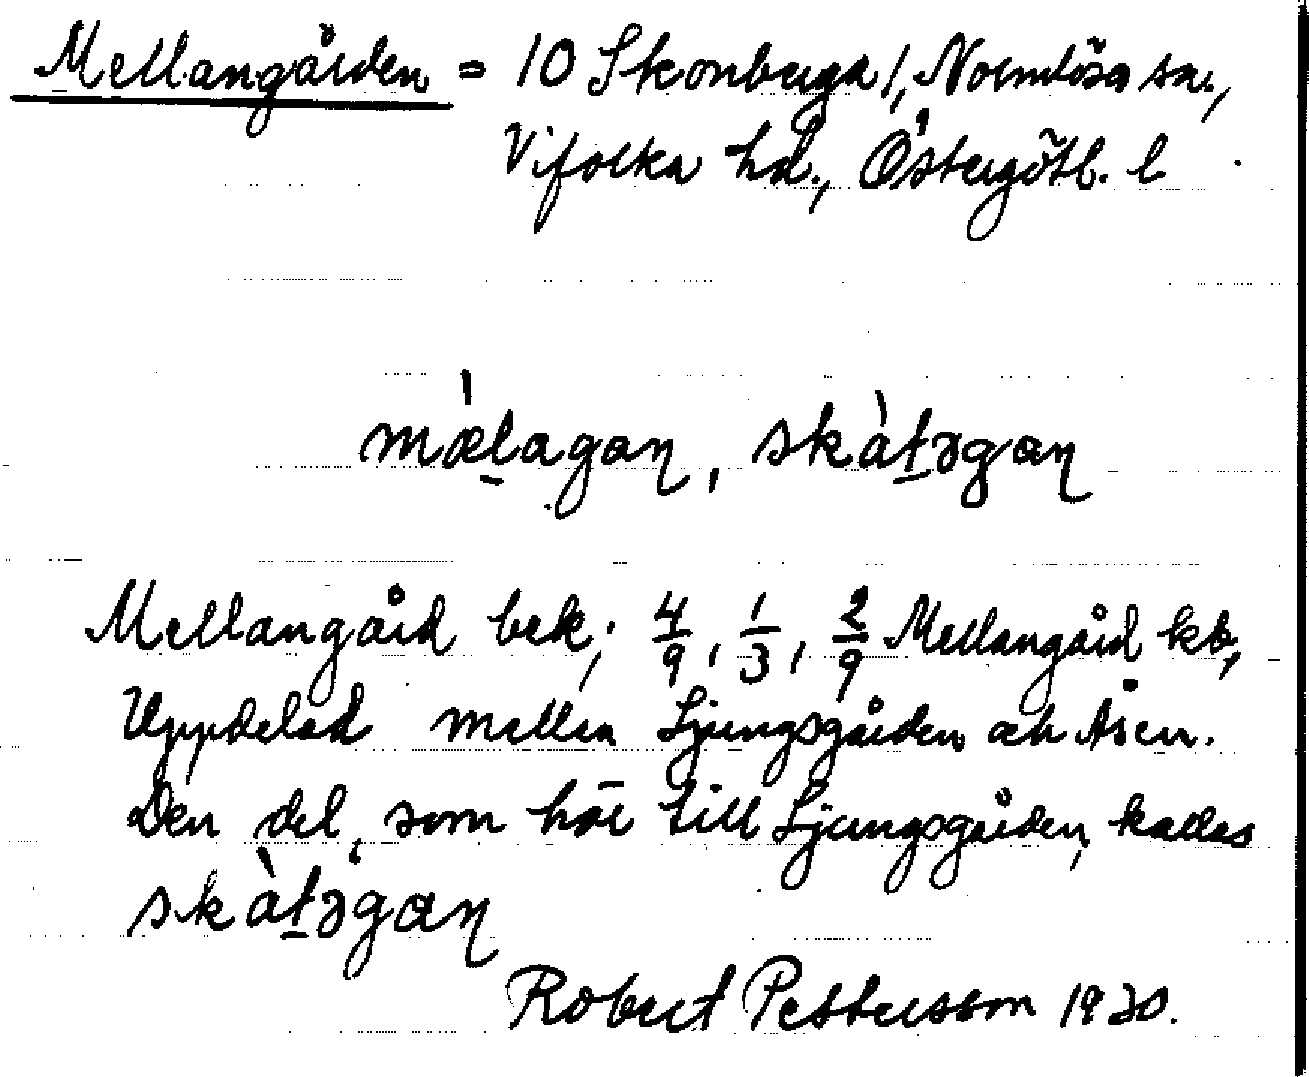 Mellangården = 10 Skonberga /, Normlösa sn.,
Vifolka hd., Östergötl. l
mæ̀lagaɳ, skàtəgaɳ
Mellangård bek; 4/9, 1/3, 2/9 Mellangård kb,
Uppdelad mellan Ljungsgården och Åsen.
Den del, som hör till Ljungsgården, kallas
skàtəgaɳ
Robert Pettersson 1930.